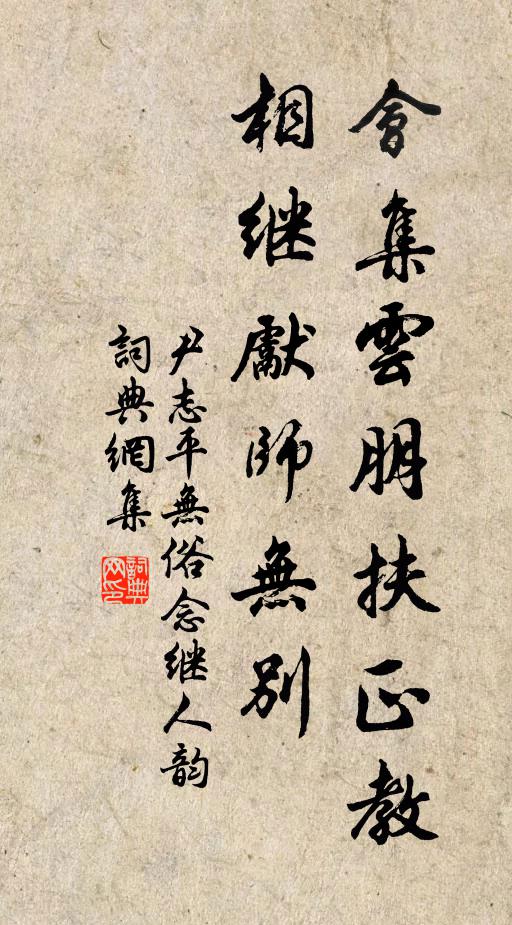 會集雲朋扶正教
相继獻師無别
尹志平無俗念继人韵
詞典網集
詞典网印